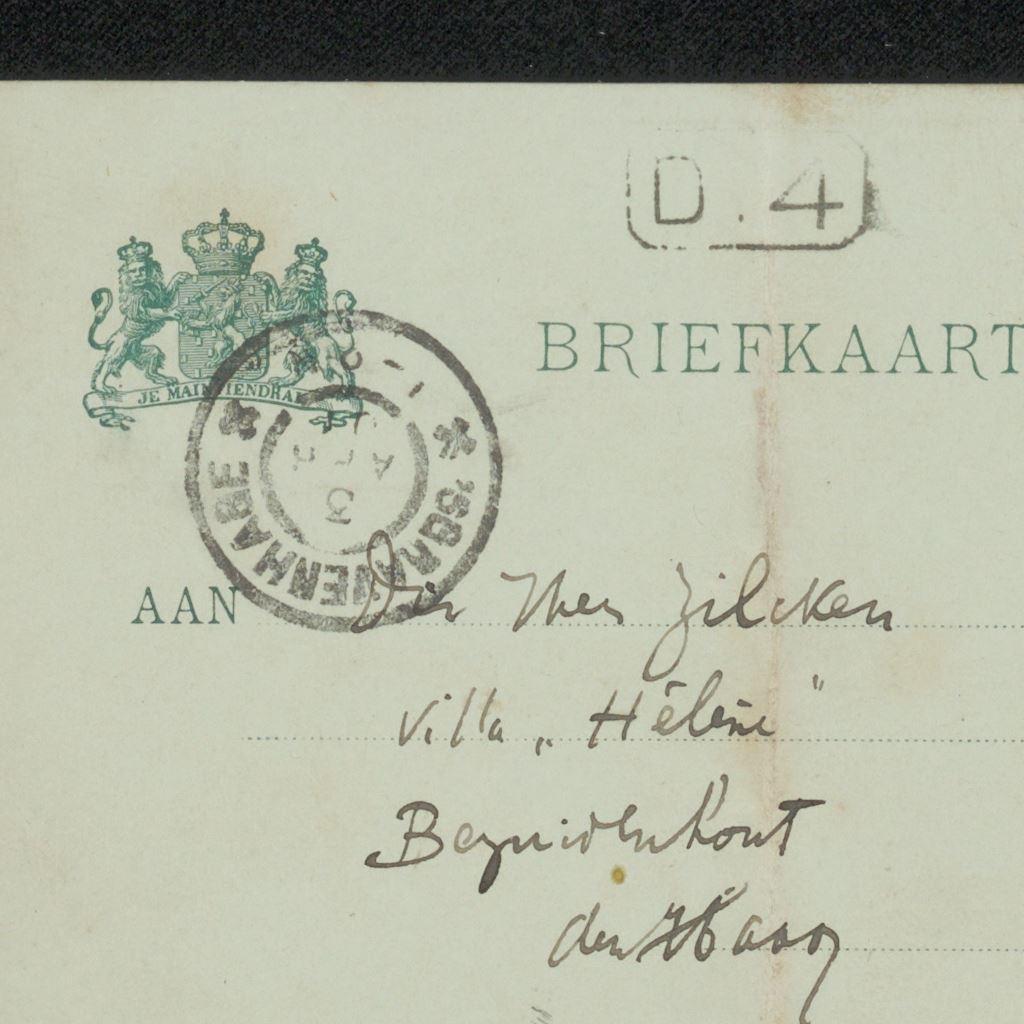 D.4
BRIEFKAART
JE MAINTIENDRAI
'SGRAVENHAGE
3
AAN Den Heer Zilcken
Villa „Hélène"
Bezuidenhout
den Haag